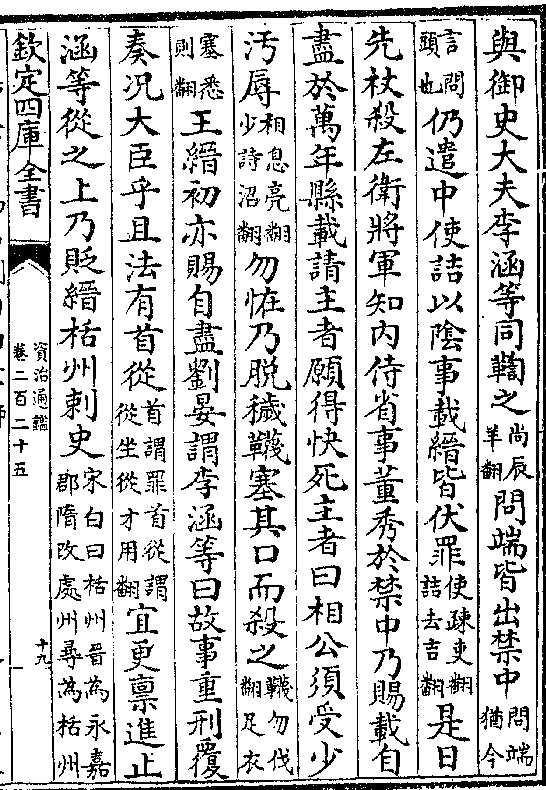 與御史大夫李涵等同鞫之尚辰羊翻問端皆出禁中問端猶今
言問頭也仍遣中使詰以陰事載縉皆伏罪使疎吏翻詰去吉翻是日
先杖殺左衛將軍知内侍省事董秀於禁中乃賜載自
盡於萬年縣載請主者願得快死主者曰相公須受少
汚辱相息亮翻少詩沼翻勿怪乃脱穢韈塞其口而殺之韈勿伐翻足衣
塞悉則翻王縉初亦賜自盡劉晏謂李涵等曰故事重刑覆
奏况大臣乎且法有首從首謂罪首從謂從坐從才用翻宜更禀進止
涵等從之上乃貶縉栝州刺史宋白曰栝州晉為永嘉郡隋改處州尋為栝州
欽定四庫全書
資治通鑑
卷二百二十五
十九